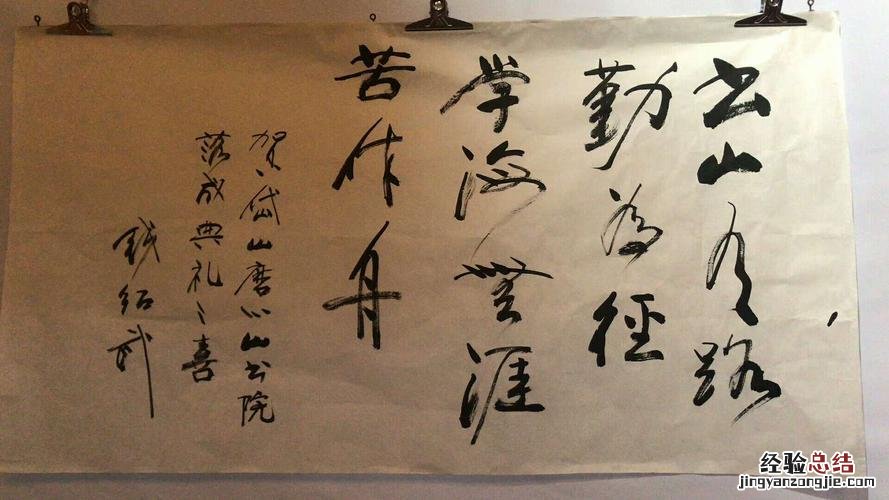 书山有路
勤為徑
学海無涯
苦作舟
贺岱山磨心山书院
落成典礼之喜
钱绍武
经验总结
jingyanzongjie.com